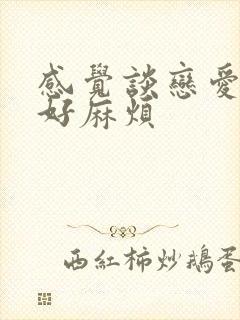 感覺談戀愛
好麻煩
西紅柿炒鵝蛋